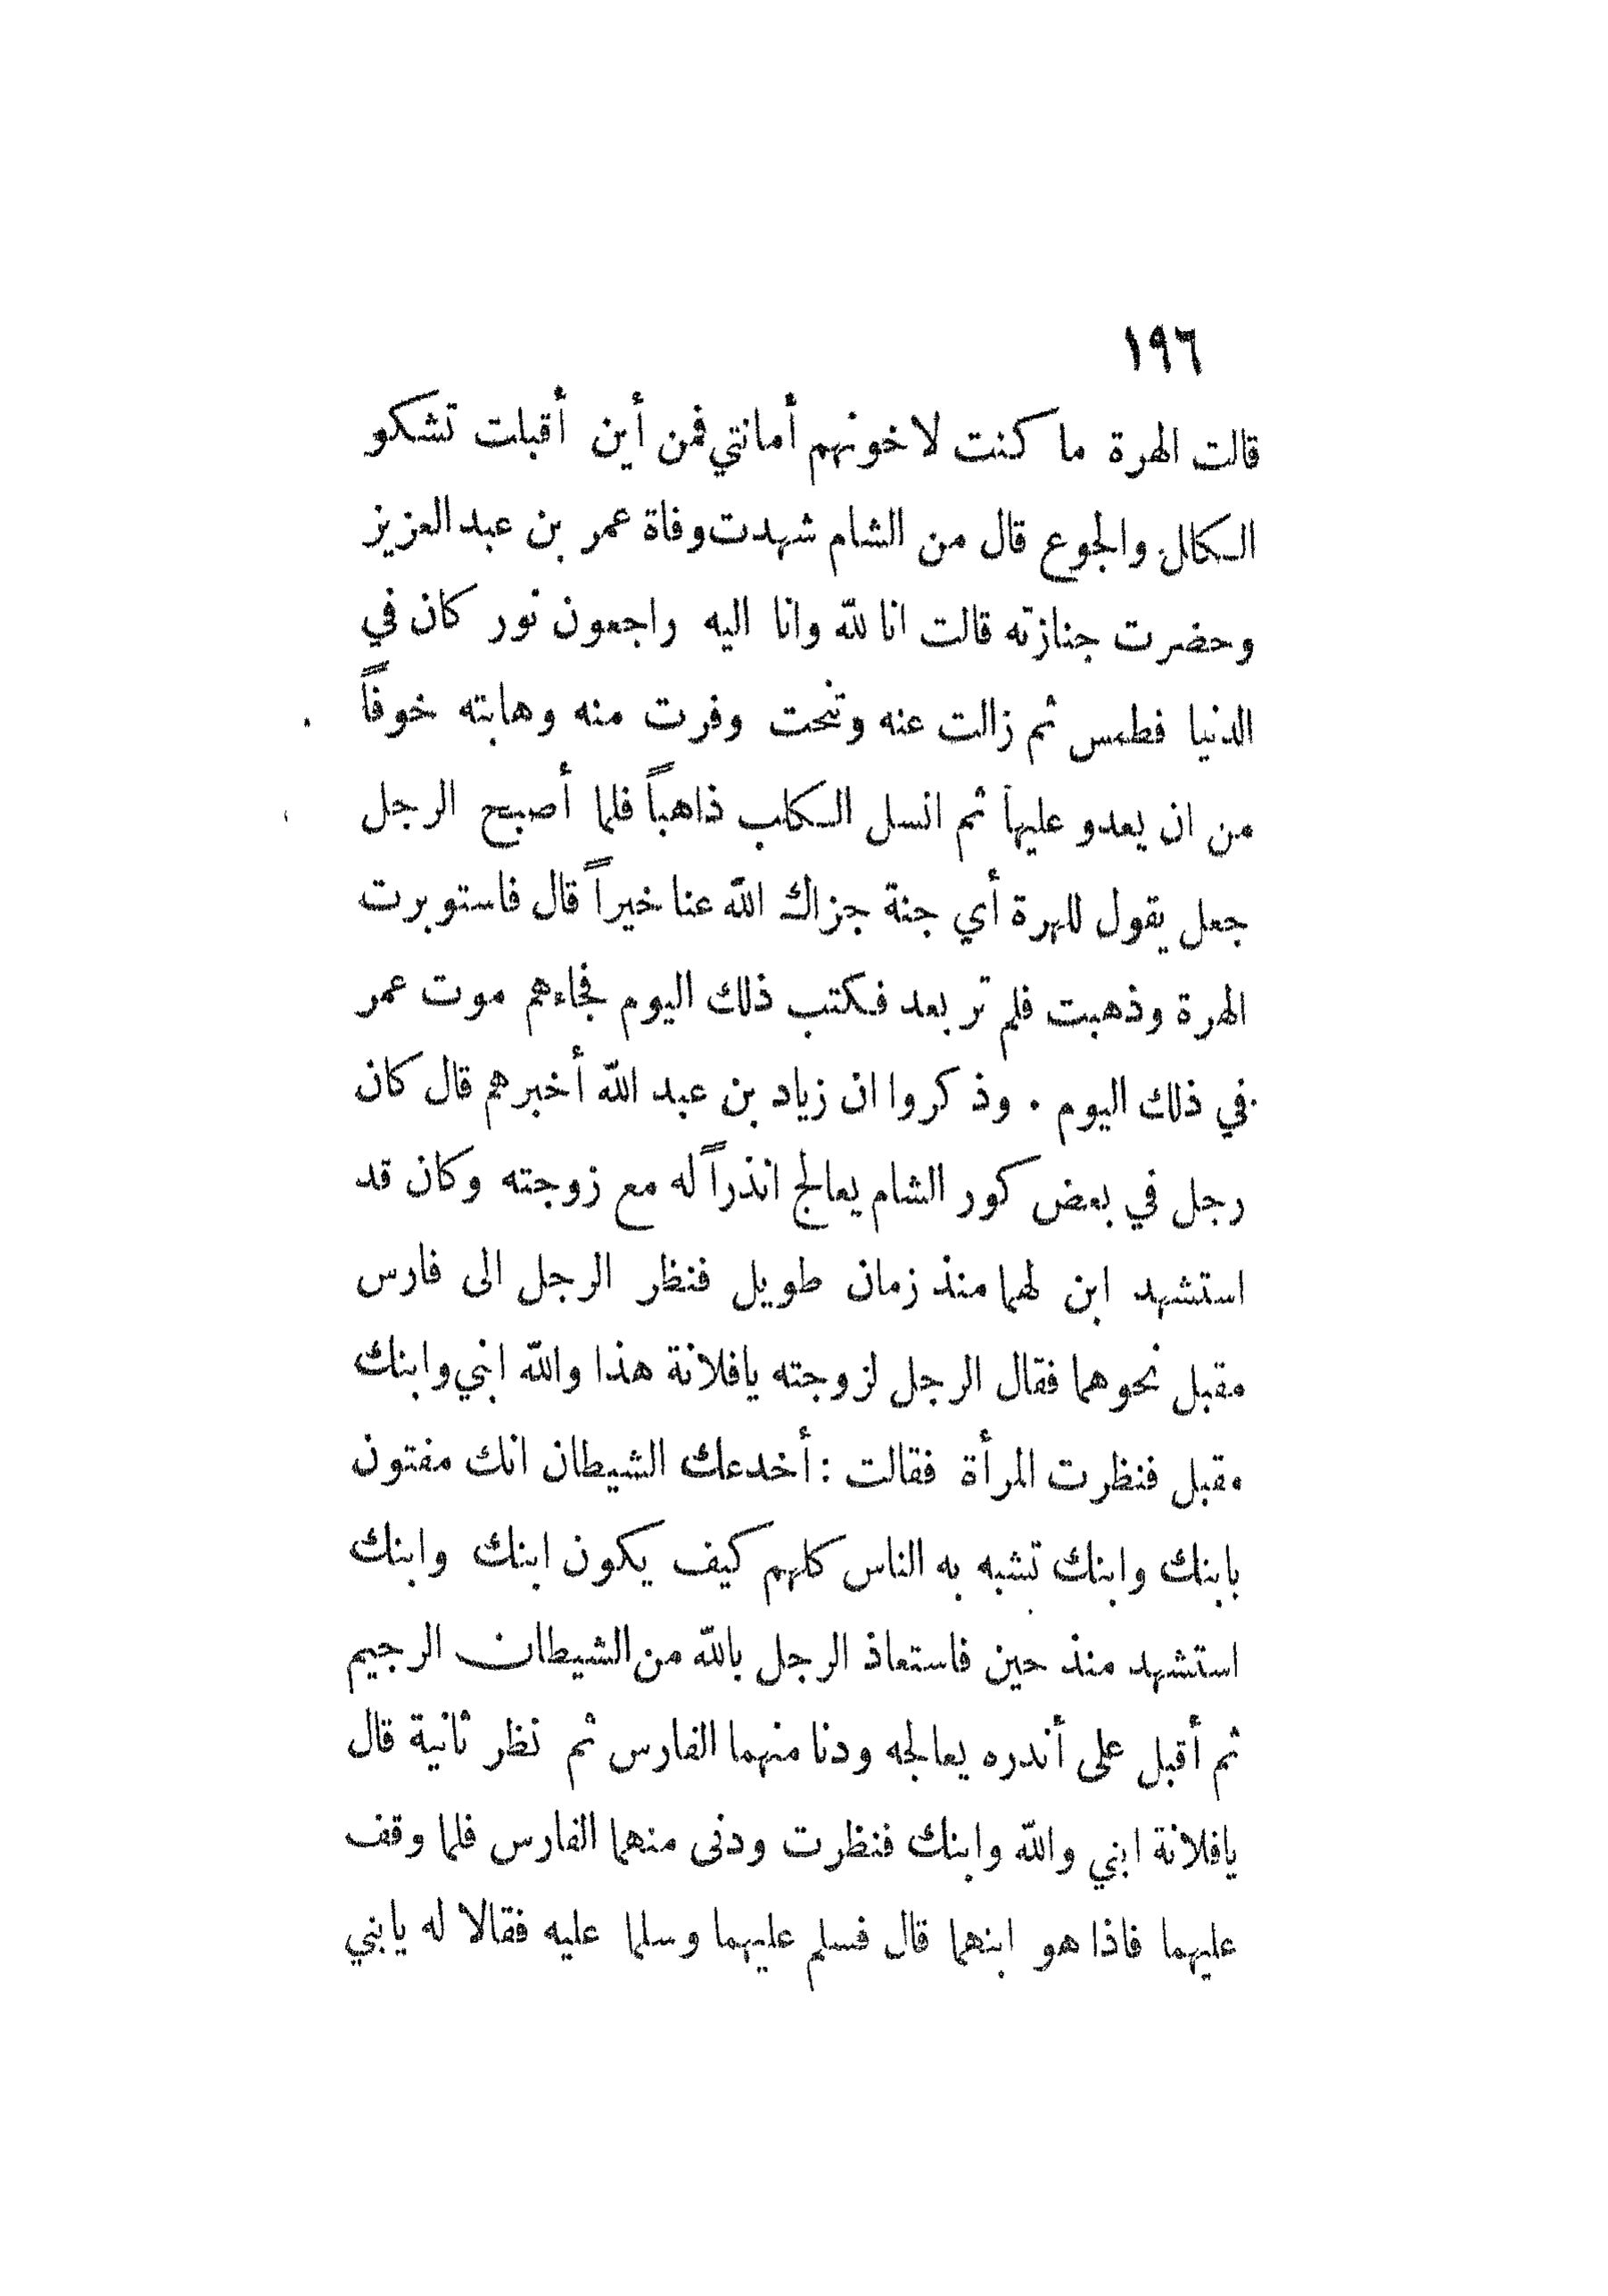 ١٩٦
قالت الهرة ما كنت لاخونهم أمانتي فمن أين أقبلت تشكو
الكلال والجوع قال من الشام شهدت وفاة عمر بن عبد العزيز
وحضرت جنازته قالت انا لله وانا اليه راجعون نور كان في
الدنيا فطمس ثم زالت عنه وتنحت وفرت منه وهابته خوفاً
من ان يعدو عليها ثم انسل الكلب ذاهباً فلما أصبح الرجل
جعل يقول للهرة أي جنة جزاك الله عنا خيراً قال فاستوبرت
الهرة وذهبت فلم تر بعد فكتب ذلك اليوم فجاءهم موت عمر
في ذلك اليوم . وذكروا ان زياد بن عبد الله أخبرهم قال كان
رجل في بعض كور الشام يعالج انذراً له مع زوجته وكان قد
استشهد ابن لهما منذ زمان طويل فنظر الرجل الى فارس
مقبل نحوهما فقال الرجل لزوجته يافلانة هذا والله ابني وابنك
مقبل فنظرت المرأة فقالت : أخدعك الشيطان انك مفتون
بابنك وابنك تشبه به الناس كلهم كيف يكون ابنك وابنك
استشهد منذ حين فاستعاذ الرجل بالله من الشيطان الرجيم
ثم أقبل على أندره يعالجه ودنا منهما الفارس ثم نظر ثانية قال
يافلانة ابني والله وابنك فنظرت ودنى منهما الفارس فلما وقف
عليهما فاذا هو ابنهما قال فسلم عليهما وسلما عليه فقالا له يابني